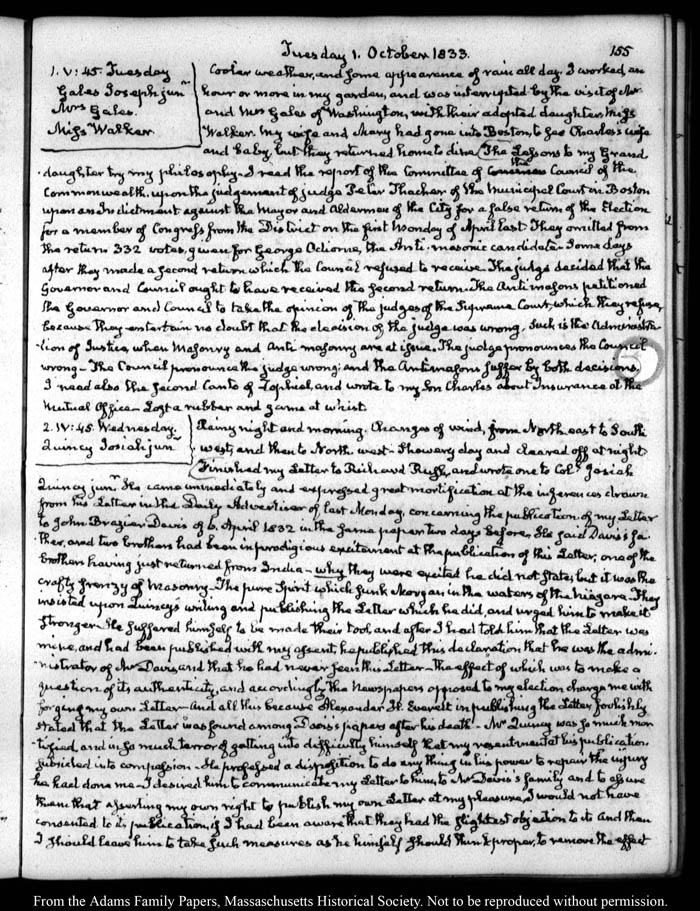 155
Tuesday 1. October 1833.
1. V: 45. Tuesday
Gales Joseph junr.
Mrs Gales.
Miss Walker.
Cooler weather, and some appearance of rain all day. I worked, an
hour or more in my garden, and was interrupted by the visit of Mr
and Mrs Gales of Washington, with their adopted daughter, Miss
Walker. My wife and Mary had gone into Boston, to see Charles's wife
and baby, but they returned home to dine. The Lessons to my Grand
daughter try my philosophy. I read the report of the Committee of the Council of the
Commonwealth, upon the judgement of judge Peter Thacher of the Municipal Court in Boston
upon an Indictment against the Mayor and Aldermen of the City for a false return of the Election
for a member of Congress from the District on the first Monday of April last. They omitted from
the return 332 votes, given for George Odiorne, the Anti-masonic candidate. Some days
after they made a second return which the Council refused to receive. The judge decided that the
Governor and Council ought to have received the second return. The Antimasons petitioned
the Governor and Council to take the opinion of the judges of the Supreme Court, which they refuse,
because they entertain no doubt that the decision of the judge was wrong. Such is the Administra-
tion of Justice, when Masonry and Anti masonry are at issue. The judge pronounces the Council
wrong — The Council pronounce the judge wrong; and the Antimasons suffer by both decisions.
I read also the second Canto of Zophiel, and wrote to my Son Charles about Insurance at the
Mutual Office — Lost a rubber and game at whist.
2. IV: 45. Wednesday.
Quincy Josiah junr
Rainy night and morning. Changes of wind, from North east to South
west, and then to North west. Showery day and cleared off at night
Finished my Letter to Richard Rush, and wrote one to Coll. Josiah
Quincy junr. He came immediately and expressed great mortification at the inferences drawn
from his Letter in the Daily Advertiser of last Monday, concerning the publication of my Letter
to John Brazier Davis of 6. April 1832 in the same paper two days before. He said Davis's fa-
ther, and two brothers had been in prodigious excitement at the publication of this Letter; one of the
brothers having just returned from India — why they were excited he did not state, but it was the
crafty frenzy of Masonry. The pure spirit which sunk Morgan in the waters of the Niagara. They
insisted upon Quincy's writing and publishing the Letter which he did, and urged him to make it
stronger. He suffered himself to be made their tool, and after I had told him that the Letter was
mine, and had been published with my assent, he published this declaration that he was the admi-
nistrator of Mr Davis, and that he had never seen this Letter — the effect of which was to make a
question of its authenticity, and accordingly the Newspapers opposed to my election charge me with
forging my own Letter — And all this because Alexander H. Everett in publishing the Letter foolishly
stated that the Letter was found among Davis's papers after his death. Mr Quincy was so much mor-
tified, and in so much terror of getting into difficulty himself that my resentment at his publication
subsided into compassion. He professed a disposition to do any thing in his power to repair the injury
he had done me — I desired him to communicate my Letter to him, to Mr Davis's family and to assure
them that asserting my own right to publish my own Letter at my pleasure, I would not have
consented to its publication, if I had been aware that they had the slightest objection to it. And then
I should leave him to take such measures as he himself should think proper, to remove the effect
From the Adams Family Papers, Massachusetts Historical Society. Not to be reproduced without permission.